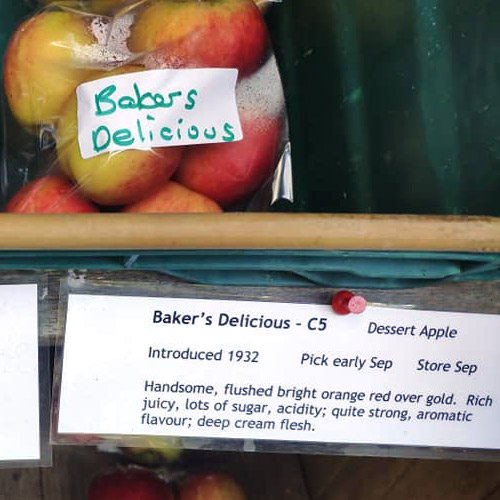 Bakers
Delicious
Baker's Delicious - C5
Dessert Apple
Introduced 1932
Pick early Sep
Store Sep
Handsome, flushed bright orange red over gold. Rich
juicy, lots of sugar, acidity; quite strong, aromatic
flavour; deep cream flesh.